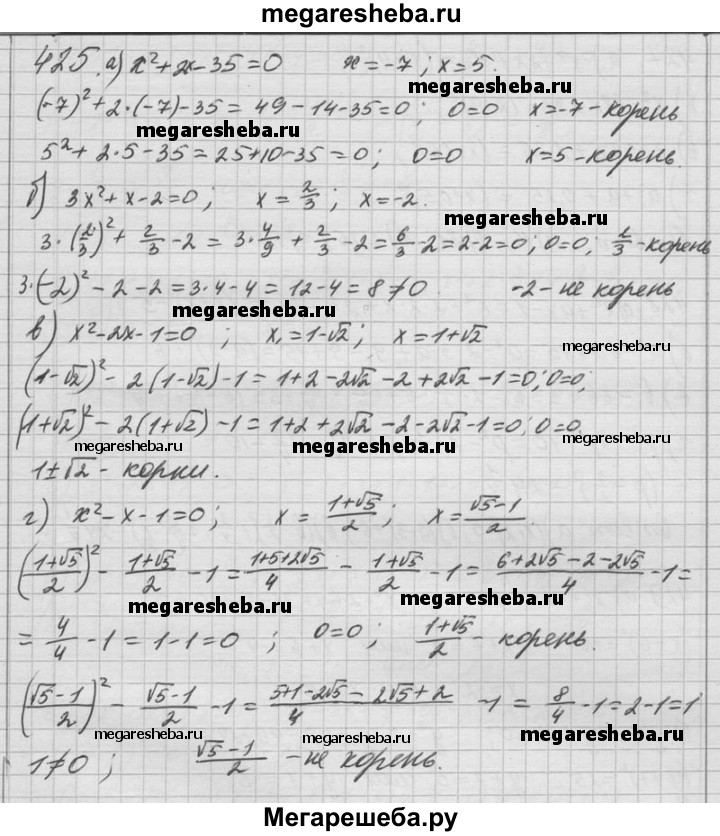 megaresheba.ru
425. а) x²+2x-35=0    x=-7; x=5.
megaresheba.ru
(-7)²+2·(-7)-35=49-14-35=0;  0=0  x=-7-корень
megaresheba.ru
5²+2·5-35=25+10-35=0;  0=0  x=5-корень.
б) 3x²+x-2=0;  x=2/3;  x=-2.
megaresheba.ru
3·(2/3)²+2/3-2=3·4/9+2/3-2=6/3-2=2-2=0; 0=0; 2/3-корень
3·(-2)²-2-2=3·4-4=12-4=8≠0  -2-не корень
megaresheba.ru
в) x²-2x-1=0 ;  x₁=1-√2;  x=1+√2
megaresheba.ru
(1-√2)²-2(1-√2)-1=1+2-2√2-2+2√2-1=0; 0=0;
megaresheba.ru
(1+√2)²-2(1+√2)-1=1+2+2√2-2-2√2-1=0; 0=0.
megaresheba.ru megaresheba.ru megaresheba.ru
1±√2-корни.
г) x²-x-1=0;  x=(1+√5)/2;  x=(√5-1)/2.
((1+√5)/2)²-(1+√5)/2-1=(1+5+2√5)/4-(1+√5)/2-1=(6+2√5-2-2√5)/4-1=
megaresheba.ru megaresheba.ru
=4/4-1=1-1=0 ;  0=0 ;  (1+√5)/2-корень.
((√5-1)/2)²-(√5-1)/2-1=(5+1-2√5-2√5+2)/4-1=8/4-1=2-1=1
megaresheba.ru megaresheba.ru megaresheba.ru
1≠0 ;  (√5-1)/2-не корень.
Мегарешеба.ру